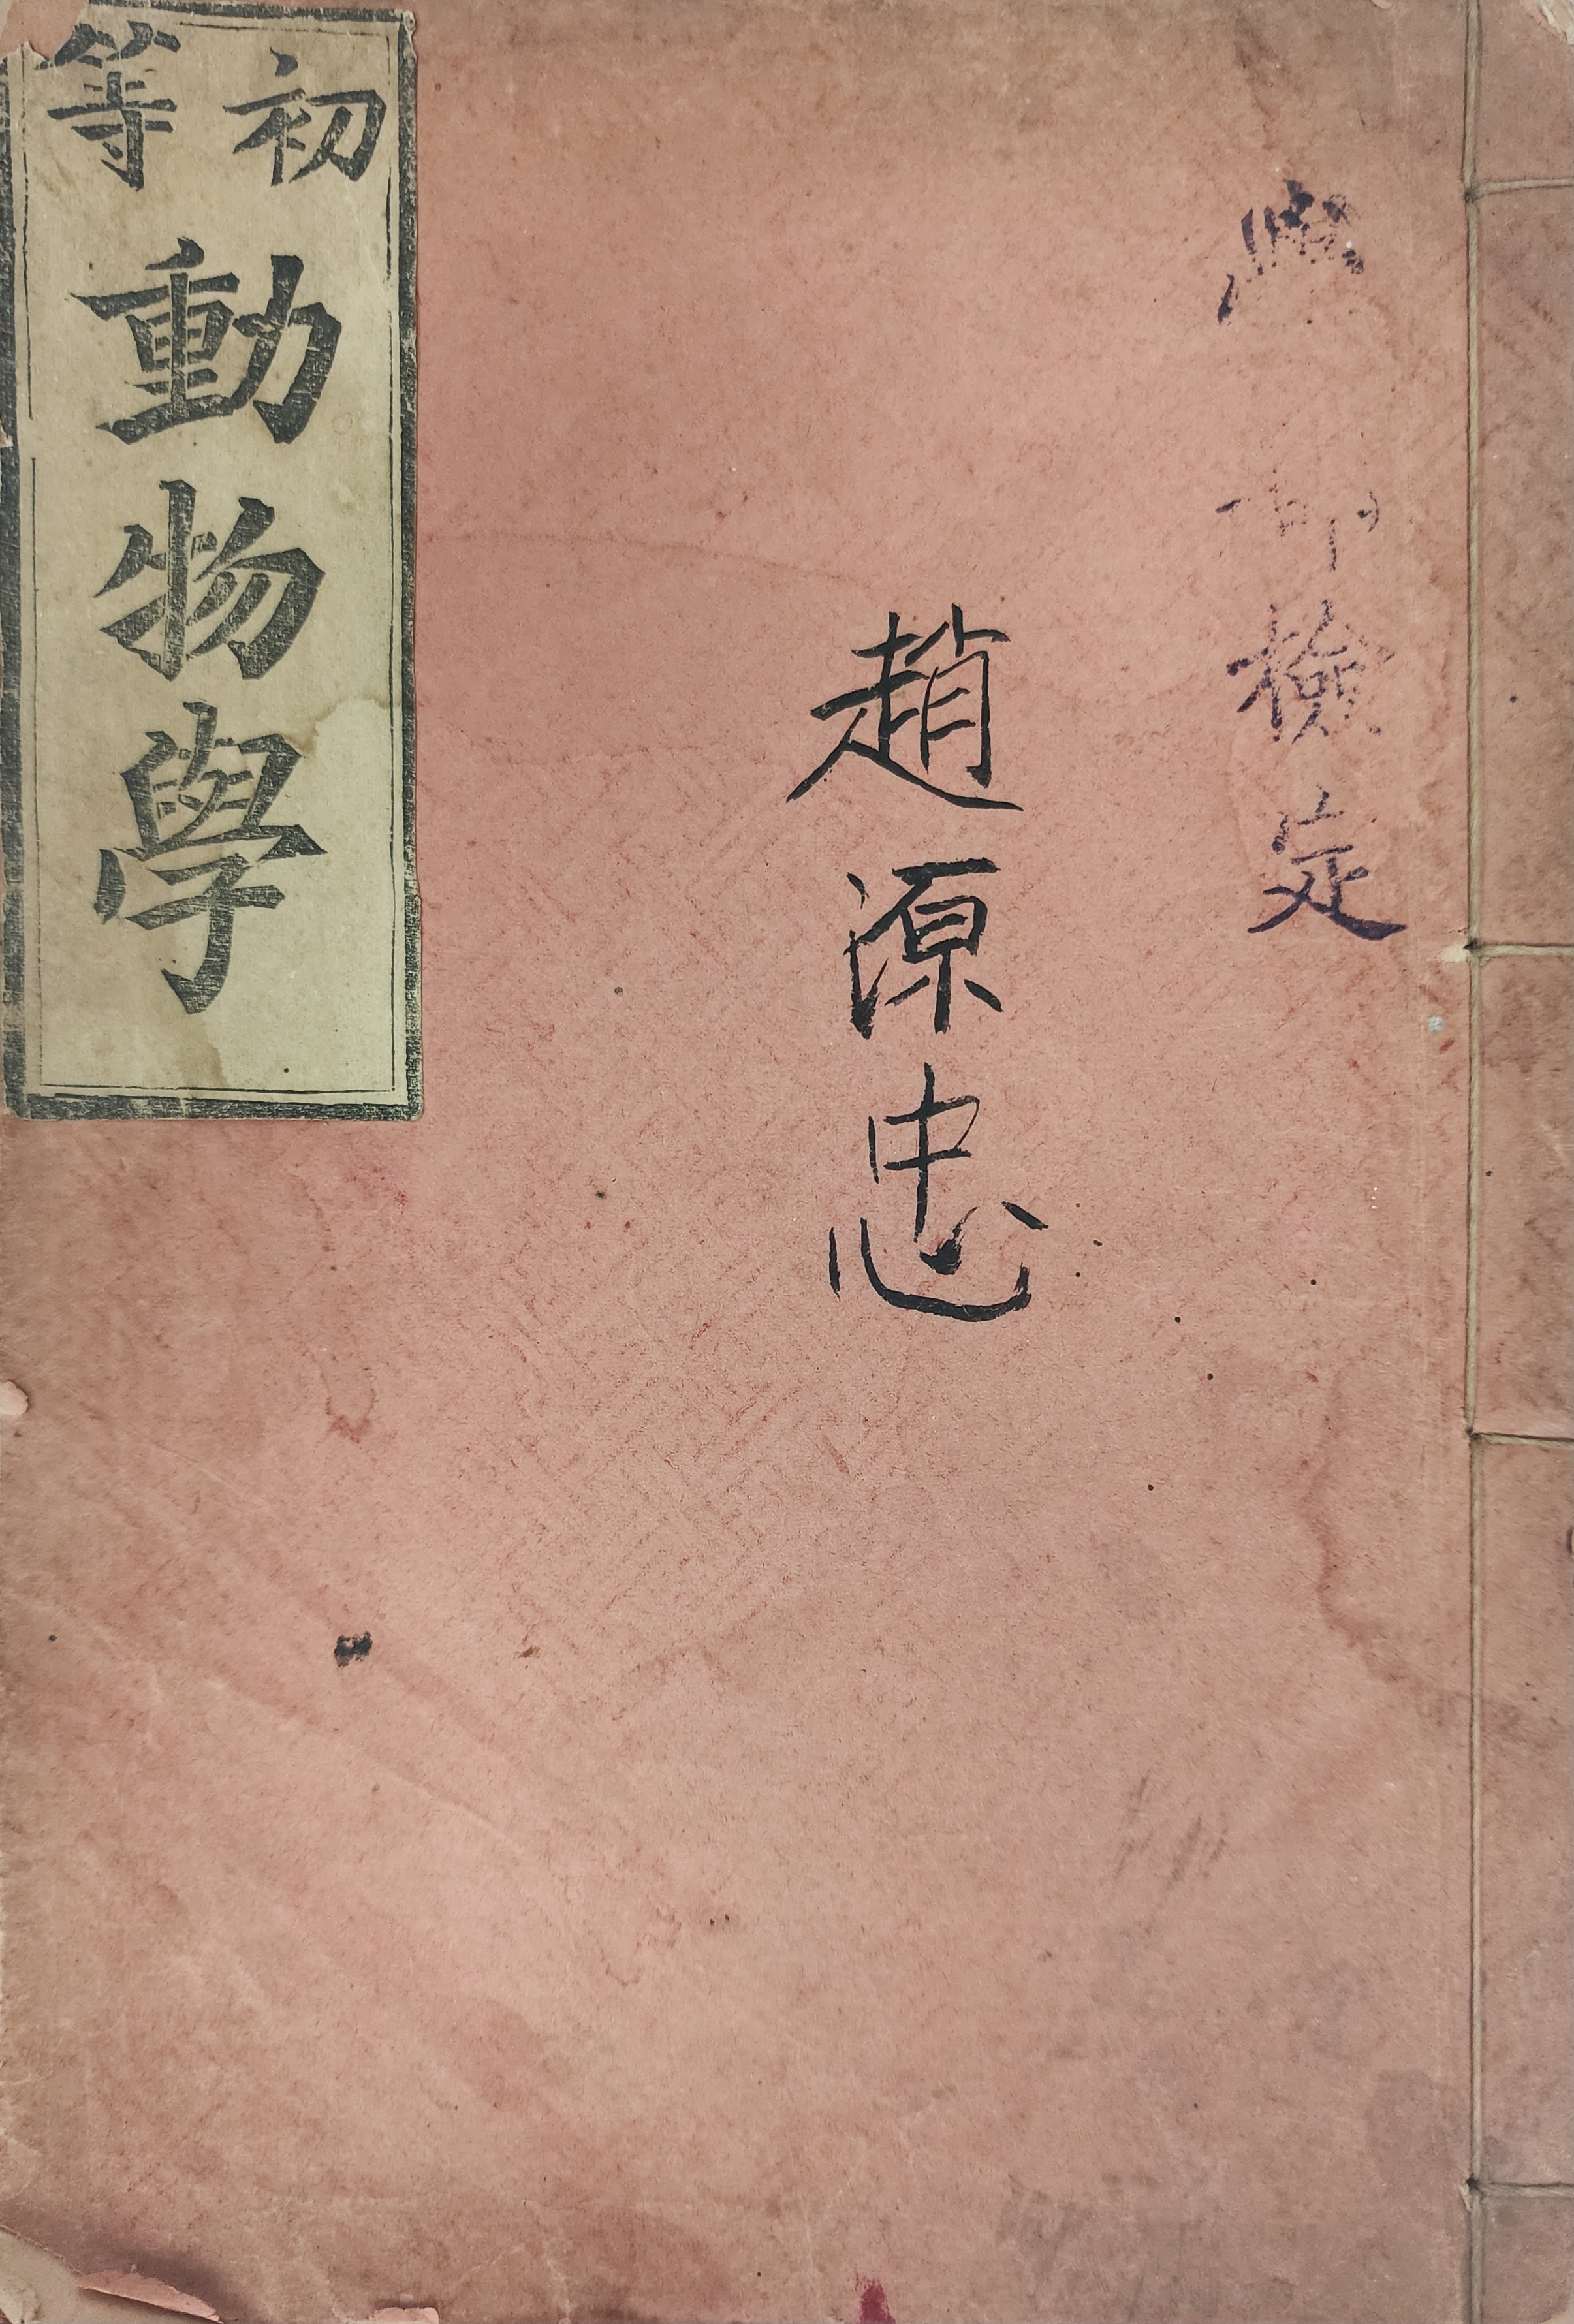 檢定
趙源忠
初等
動物學